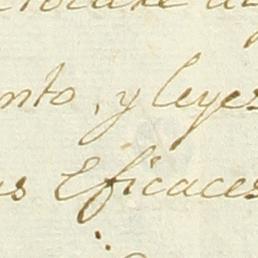 nto, y leyes
as Eficaces